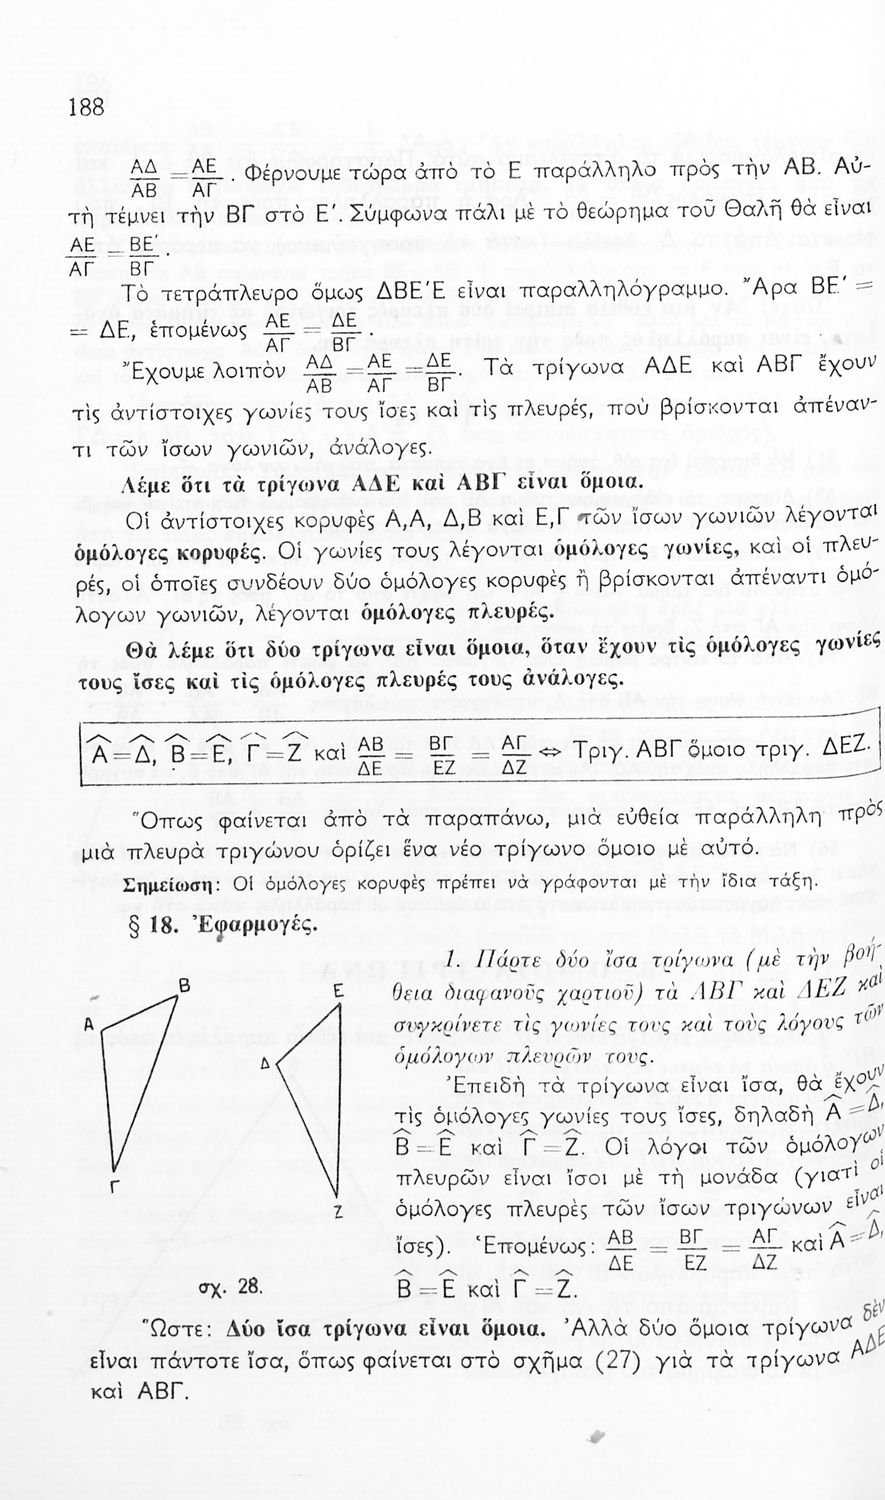 188
ΑΔ/ΑΒ = ΑΕ/ΑΓ . Φέρνουμε τώρα ἀπὸ τὸ Ε παράλληλο πρὸς τὴν ΑΒ. Αὐ-
τὴ τέμνει τὴν ΒΓ στὸ Ε′. Σύμφωνα πάλι μὲ τὸ θεώρημα τοῦ Θαλῆ θὰ εἶναι
ΑΕ/ΑΓ = ΒΕ′/ΒΓ .
Τὸ τετράπλευρο ὅμως ΔΒΕ′Ε εἶναι παραλληλόγραμμο. Ἄρα ΒΕ′ =
= ΔΕ, ἑπομένως ΑΕ/ΑΓ = ΔΕ/ΒΓ .
Ἔχουμε λοιπὸν ΑΔ/ΑΒ = ΑΕ/ΑΓ = ΔΕ/ΒΓ. Τὰ τρίγωνα ΑΔΕ καὶ ΑΒΓ ἔχουν
τὶς ἀντίστοιχες γωνίες τους ἴσες καὶ τὶς πλευρές, ποὺ βρίσκονται ἀπέναν-
τι τῶν ἴσων γωνιῶν, ἀνάλογες.
Λέμε ὅτι τὰ τρίγωνα ΑΔΕ καὶ ΑΒΓ εἶναι ὅμοια.
Οἱ ἀντίστοιχες κορυφὲς Α,Α, Δ,Β καὶ Ε,Γ τῶν ἴσων γωνιῶν λέγονται
ὁμόλογες κορυφές. Οἱ γωνίες τους λέγονται ὁμόλογες γωνίες, καὶ οἱ πλευ-
ρές, οἱ ὁποῖες συνδέουν δύο ὁμόλογες κορυφὲς ἢ βρίσκονται ἀπέναντι ὁμό-
λογων γωνιῶν, λέγονται ὁμόλογες πλευρές.
Θὰ λέμε ὅτι δύο τρίγωνα εἶναι ὅμοια, ὅταν ἔχουν τὶς ὁμόλογες γωνίες
τους ἴσες καὶ τὶς ὁμόλογες πλευρές τους ἀνάλογες.
Α̂ = Δ̂, Β̂ = Ε̂, Γ̂ = Ζ̂ καὶ ΑΒ/ΔΕ = ΒΓ/ΕΖ = ΑΓ/ΔΖ ⇔ Τριγ. ΑΒΓ ὅμοιο τριγ. ΔΕΖ.
Ὅπως φαίνεται ἀπὸ τὰ παραπάνω, μιὰ εὐθεία παράλληλη πρὸς
μιὰ πλευρὰ τριγώνου ὁρίζει ἕνα νέο τρίγωνο ὅμοιο μὲ αὐτό.
Σημείωση: Οἱ ὁμόλογες κορυφὲς πρέπει νὰ γράφονται μὲ τὴν ἴδια τάξη.
§ 18. Ἐφαρμογές.
Α
Β
Γ
Δ
Ε
Ζ
σχ. 28.
1. Πάρτε δύο ἴσα τρίγωνα (μὲ τὴν βοή-
θεια διαφανοῦς χαρτιοῦ) τὰ ΑΒΓ καὶ ΔΕΖ καὶ
συγκρίνετε τὶς γωνίες τους καὶ τοὺς λόγους τῶν
ὁμόλογων πλευρῶν τους.
Ἐπειδὴ τὰ τρίγωνα εἶναι ἴσα, θὰ ἔχουν
τὶς ὁμόλογες γωνίες τους ἴσες, δηλαδὴ Α̂ = Δ̂,
Β̂ = Ε̂ καὶ Γ̂ = Ζ̂. Οἱ λόγοι τῶν ὁμόλογων
πλευρῶν εἶναι ἴσοι μὲ τὴ μονάδα (γιατὶ οἱ
ὁμόλογες πλευρὲς τῶν ἴσων τριγώνων εἶναι
ἴσες). Ἑπομένως: ΑΒ/ΔΕ = ΒΓ/ΕΖ = ΑΓ/ΔΖ καὶ Α̂ = Δ̂,
Β̂ = Ε̂ καὶ Γ̂ = Ζ̂.
Ὥστε: Δύο ἴσα τρίγωνα εἶναι ὅμοια. Ἀλλὰ δύο ὅμοια τρίγωνα δὲν
εἶναι πάντοτε ἴσα, ὅπως φαίνεται στὸ σχῆμα (27) γιὰ τὰ τρίγωνα ΑΔΕ
καὶ ΑΒΓ.